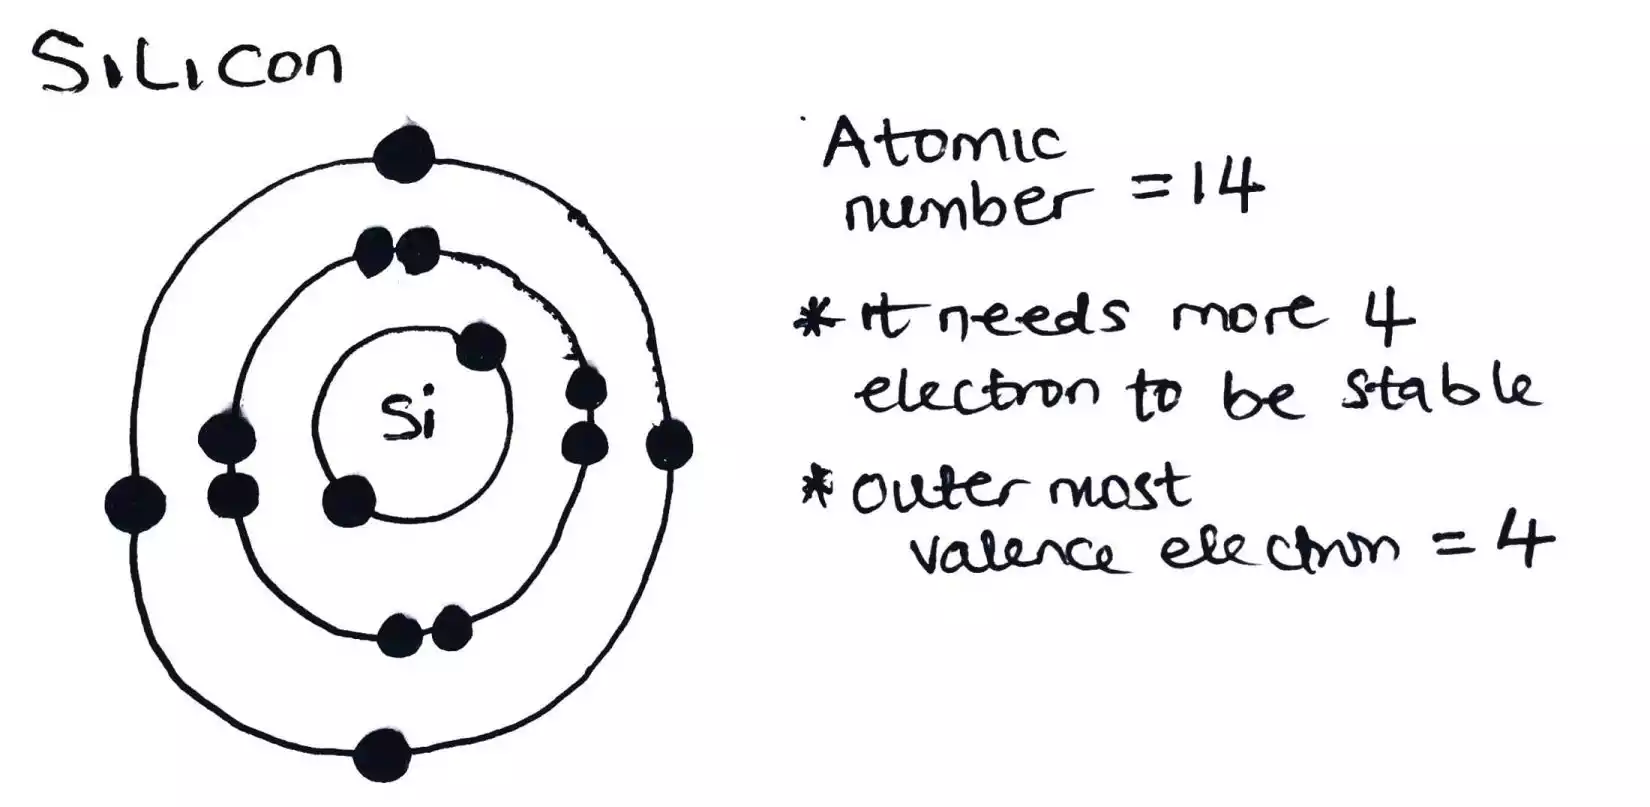 SiLicon
Si
Atomic
number = 14
* it needs more 4
electron to be stable
* outer most
valence electron = 4